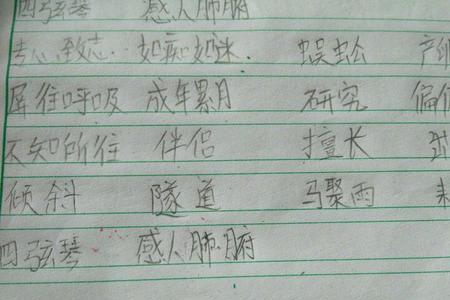 四弦琴 感人肺腑
专心致志. 如痴如迷. 蜈蚣
屏住呼吸 成年累月 研究 偏
不知所往 伴侣 擅长
倾斜 隧道 马聚雨
四弦琴 感人肺腑